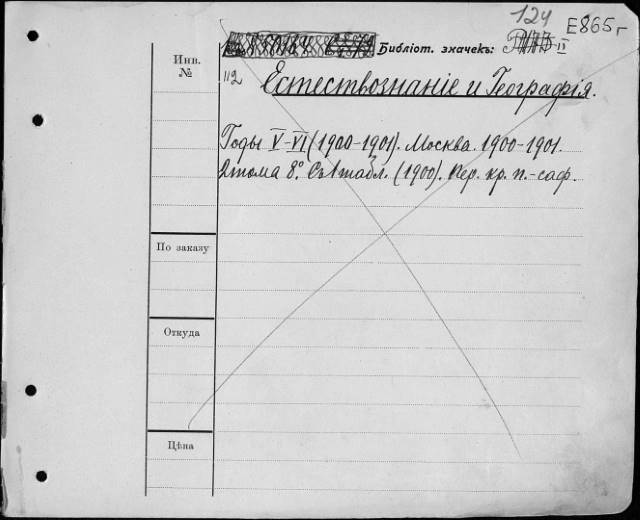 124 Е865г
Библіот. значекъ: II
Инв.
№
112 Естествознаніе и Географія.
Годы V-VI (1900-1901). Москва. 1900-1901.
2 тома 8º. Съ 1 табл. (1900). Пер. кр. п.-саф.
По заказу
Откуда
Цѣна